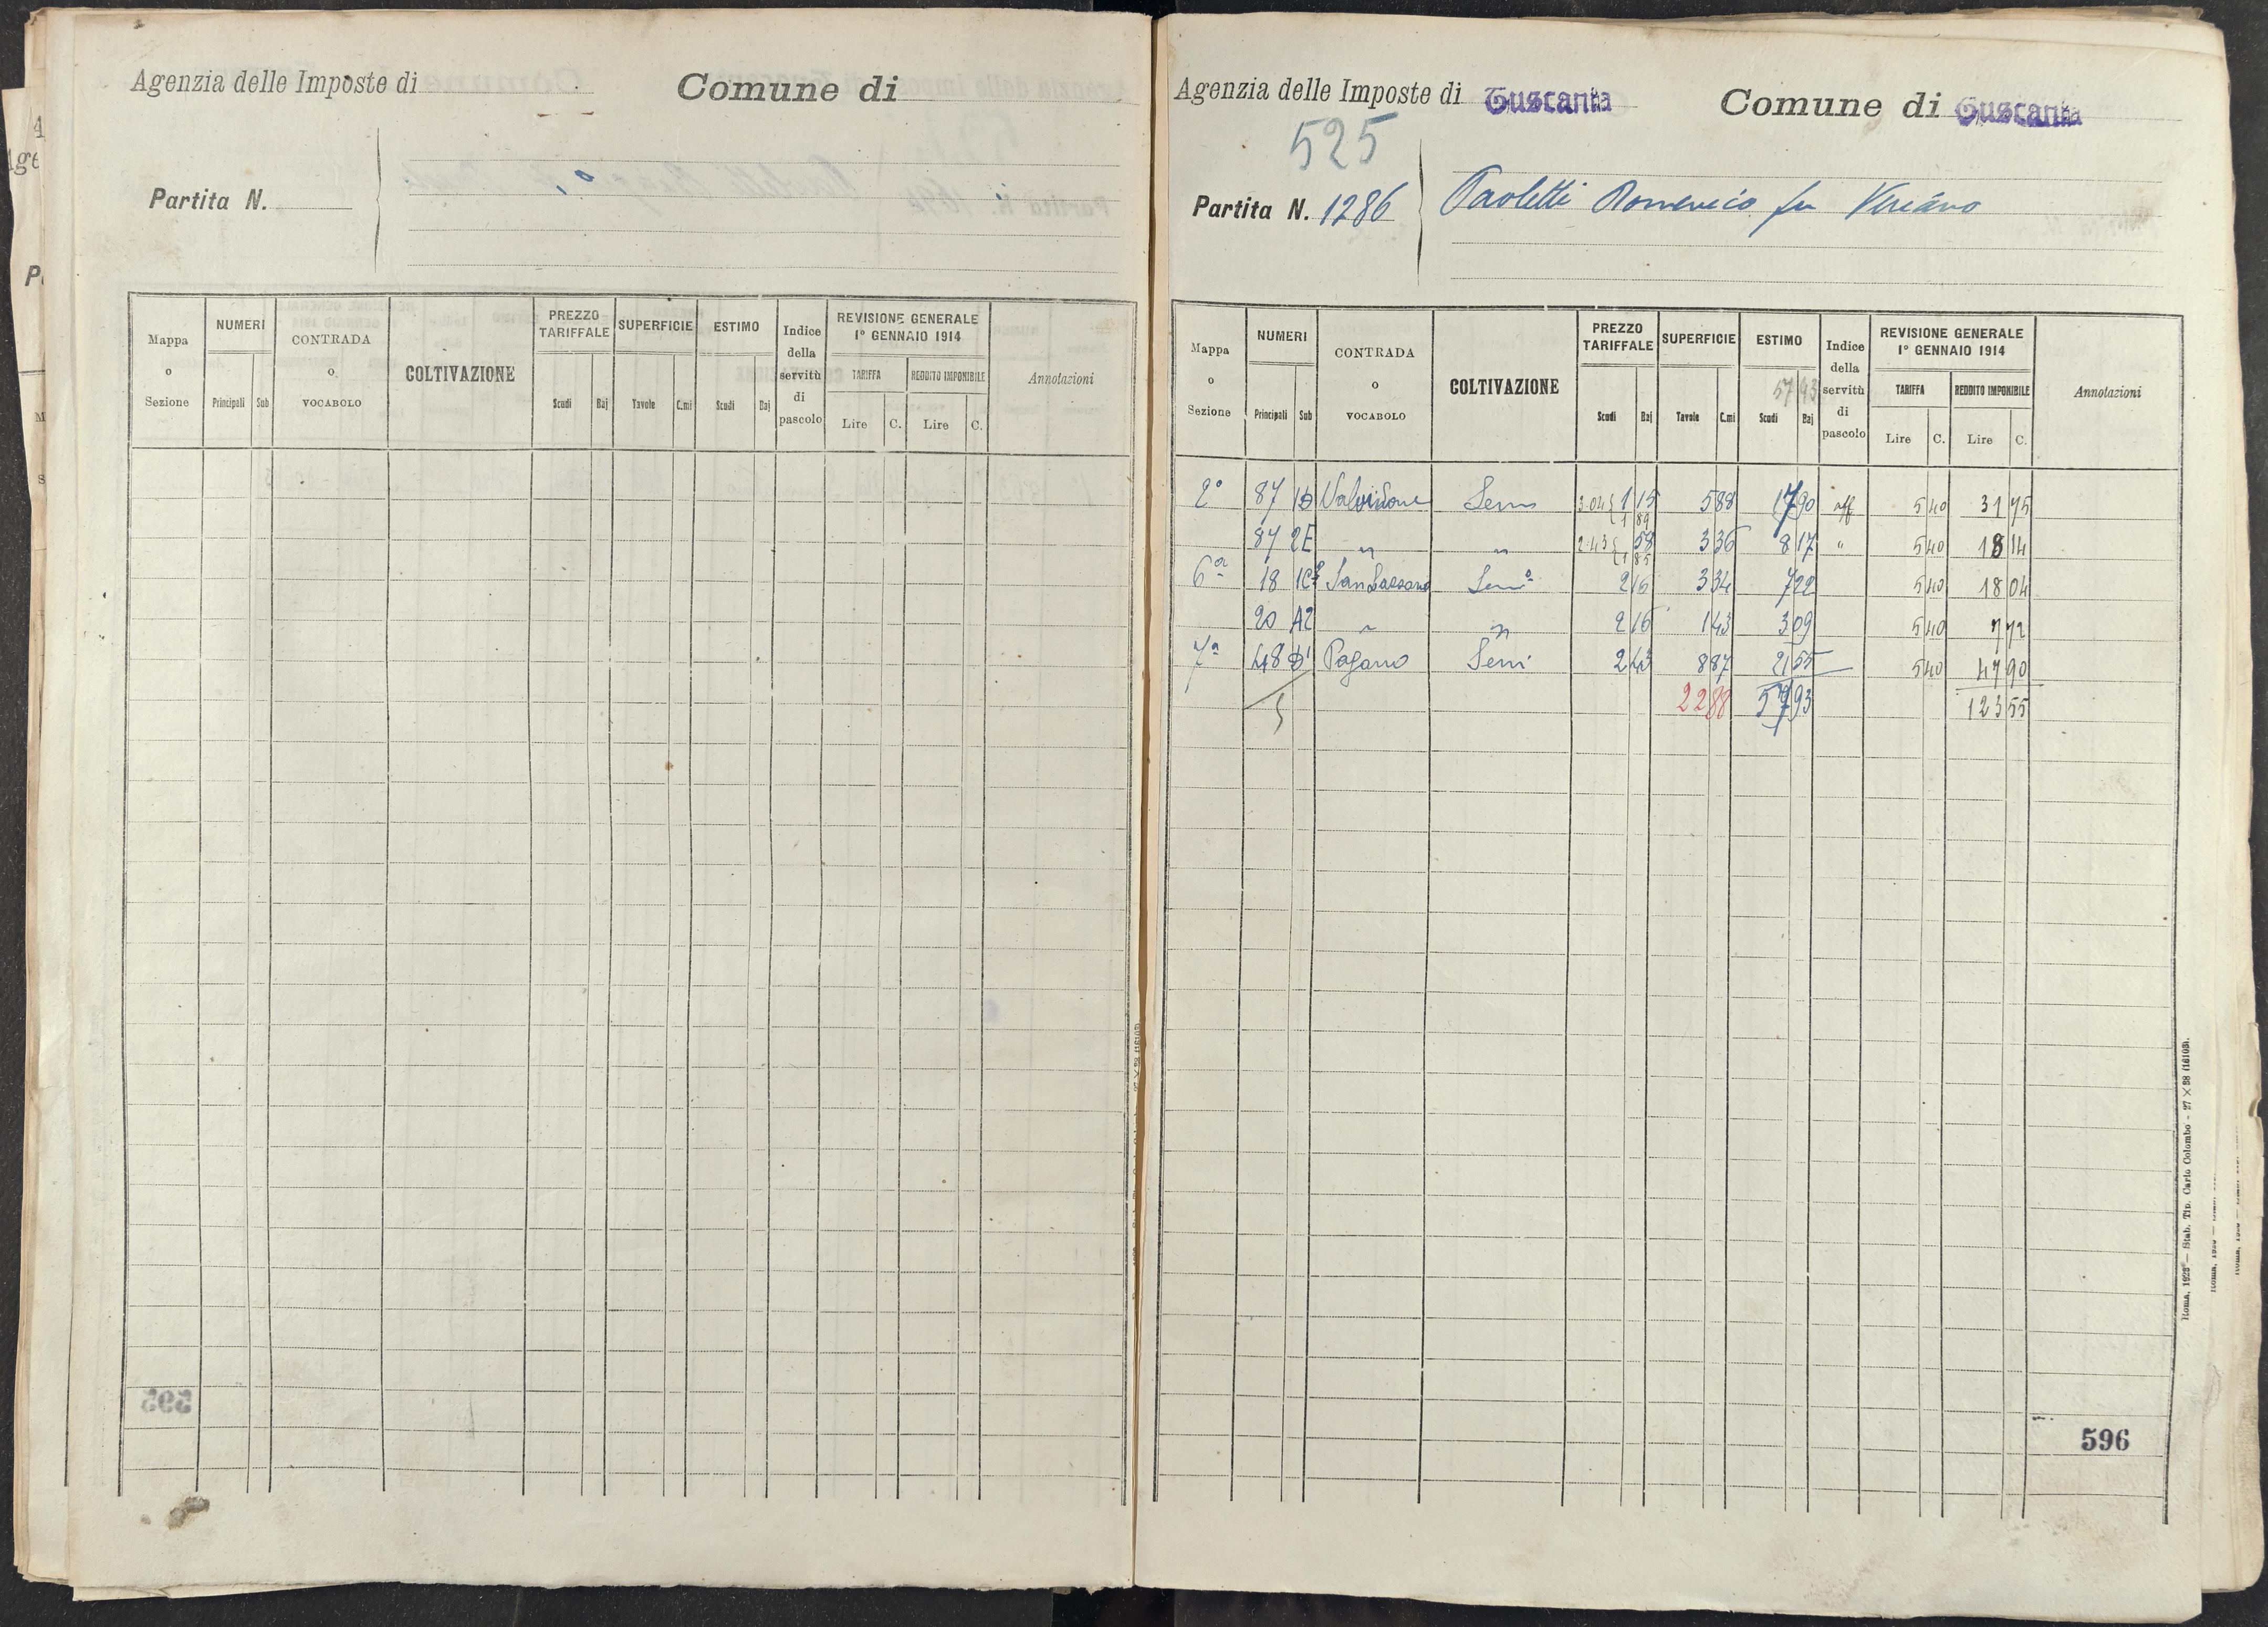 Agenzia delle Imposte di
Comune di
Partita N.
Mappa o Sezione
NUMERI
Principali Sub
CONTRADA o VOCABOLO
COLTIVAZIONE
PREZZO TARIFFALE
Scudi Baj
SUPERFICIE
Tavole C.mi
ESTIMO
Scudi Baj
Indice della servitù di pascolo
REVISIONE GENERALE
1° GENNAIO 1914
TARIFFA
Lire C.
REDDITO IMPONIBILE
Lire C.
Annotazioni
595
Agenzia delle Imposte di Tuscania
Comune di Tuscania
525
Partita N. 1286
Paoletti Domenico fu
Mappa o Sezione
NUMERI
Principali Sub
CONTRADA o VOCABOLO
COLTIVAZIONE
PREZZO TARIFFALE
Scudi Baj
SUPERFICIE
Tavole C.mi
ESTIMO
57 93
Scudi Baj
Indice della servitù di pascolo
REVISIONE GENERALE
1° GENNAIO 1914
TARIFFA
Lire C.
REDDITO IMPONIBILE
Lire C.
Annotazioni
2° 87 Valvidone Sem 3.04 1 15 1 89 5 88 17 90 aff 5 40 31 75
87 2E " " 2.43 58 1 85 3 36 8 17 " 5 40 18 14
6a 18 San Lazzaro Semo 2 16 3 34 7 22 5 40 18 04
20 A2 " " 2 16 1 43 3 09 5 40 7 72
7a 48 Pagano Sem 2 43 8 87 21 55 5 40 47 90
5 22 88 57 93 123 55
596
Roma, 1923 — Stab. Tip. Carlo Colombo - 27 X 38 (16103).